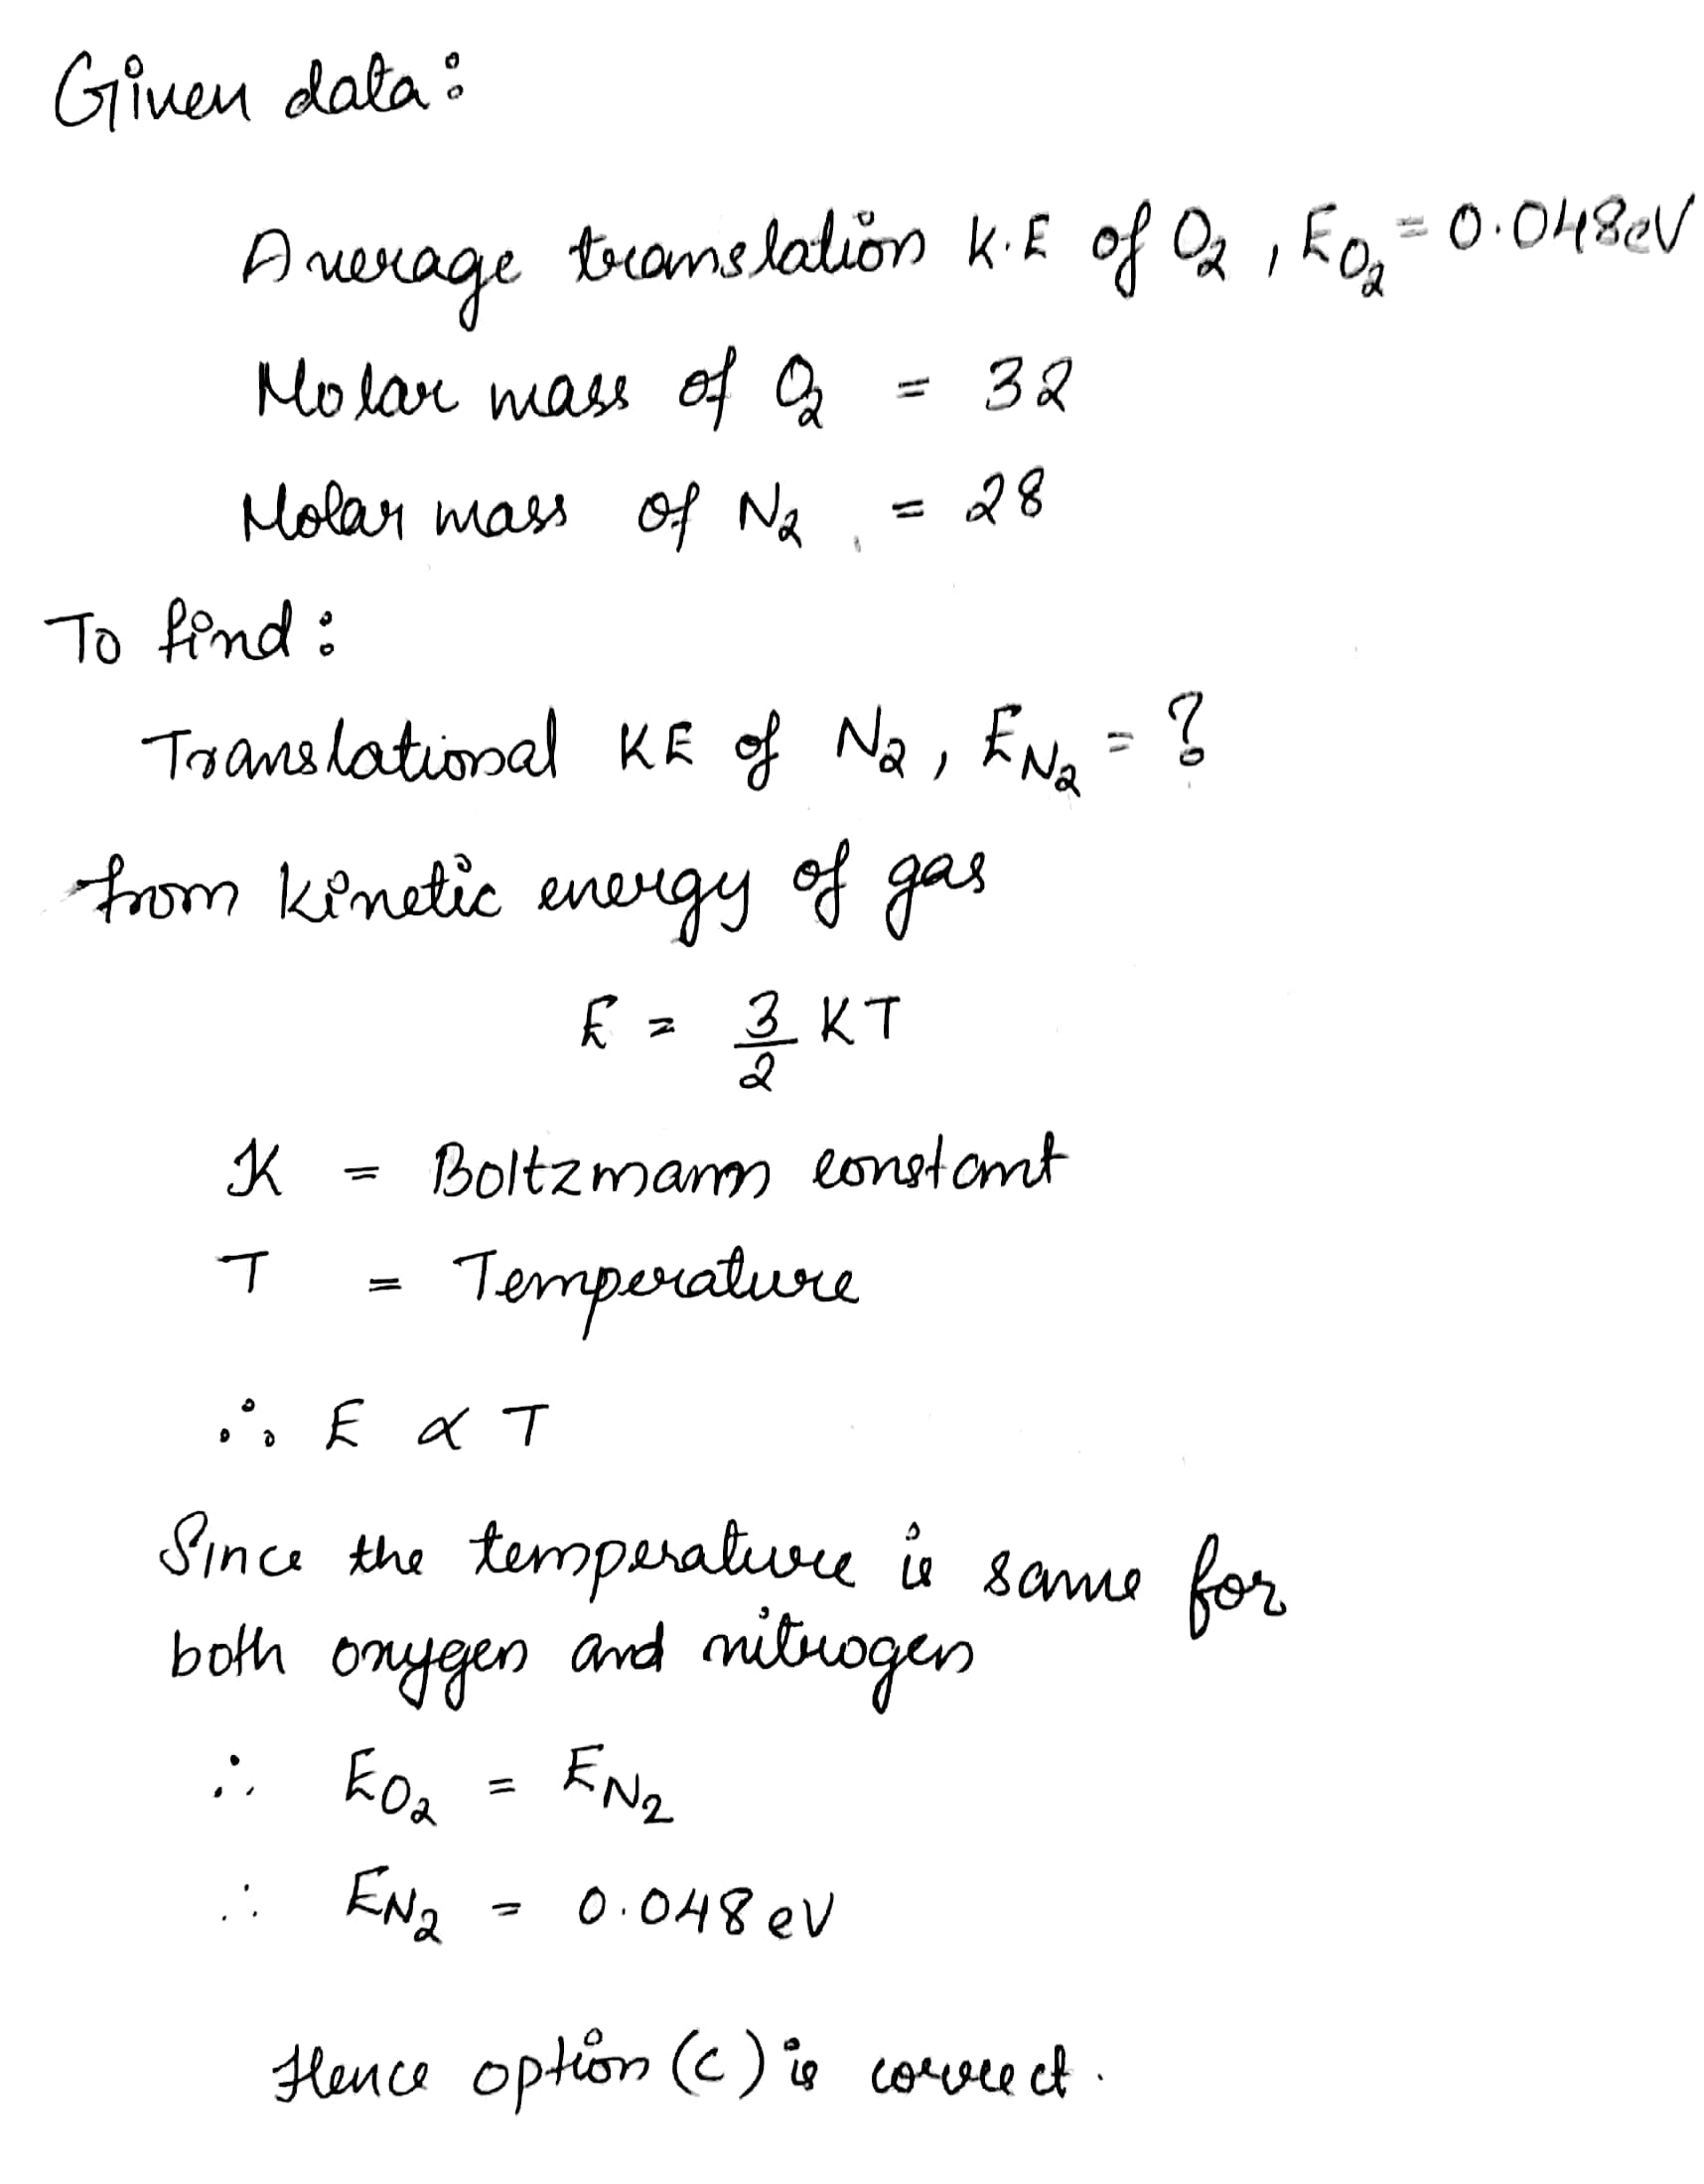 Given data:
Average translation K.E of O₂, E_O₂ = 0.048eV
Molar mass of O₂ = 32
Molar mass of N₂ = 28
To find:
Translational KE of N₂, E_N₂ = ?
from kinetic energy of gas
E = 3/2 KT
K = Boltzmann constant
T = Temperature
∴ E ∝ T
Since the temperature is same for
both oxygen and nitrogen
∴ E_O₂ = E_N₂
∴ E_N₂ = 0.048 eV
Hence option (c) is correct.